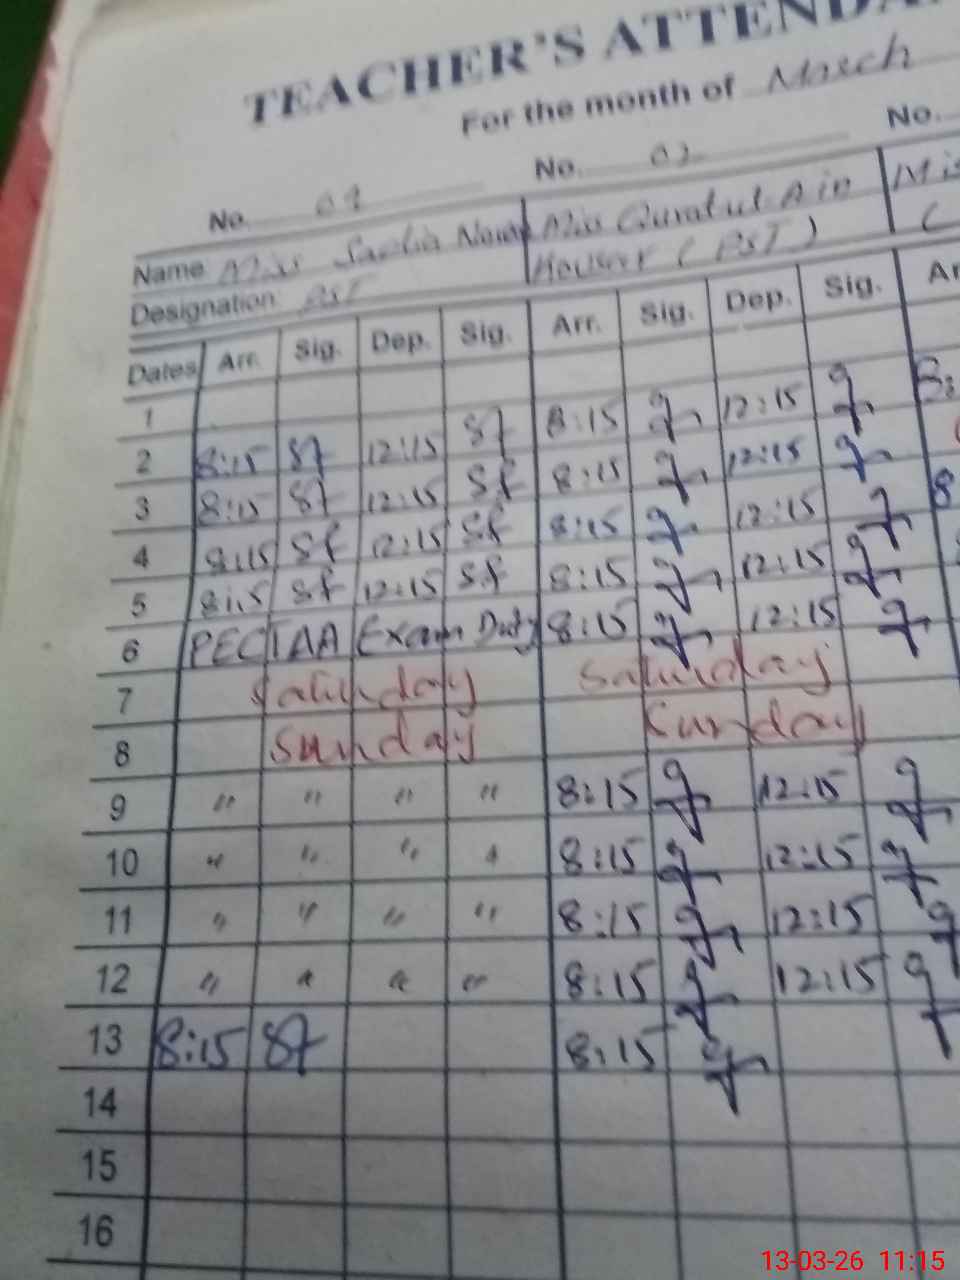 TEACHER'S ATTENDA
For the month of March
No. 01 No. 02 No.
Name Miss Sadia Miss Quratul Ain Mis
Designation PST Kousar (PST) (
Dates Arr. Sig. Dep. Sig. Arr. Sig. Dep. Sig. Ar
1
8:15 12:15
2 8:15 Sf 12:15 Sf 8:15 12:15
3 8:15 Sf 12:15 Sf 8:15 12:15
4 8:15 Sf 12:15 Sf 8:15 12:15
5 8:15 Sf 12:15 Sf 8:15 12:15
6 PECTAA Exam Duty
7 Saturday Saturday
8 Sunday Sunday
9 " " " " 8:15 12:15
10 " " " " 8:15 12:15
11 " " " " 8:15 12:15
12 " " " " 8:15 12:15
13 8:15 Sf 8:15
14
15
16
13-03-26 11:15